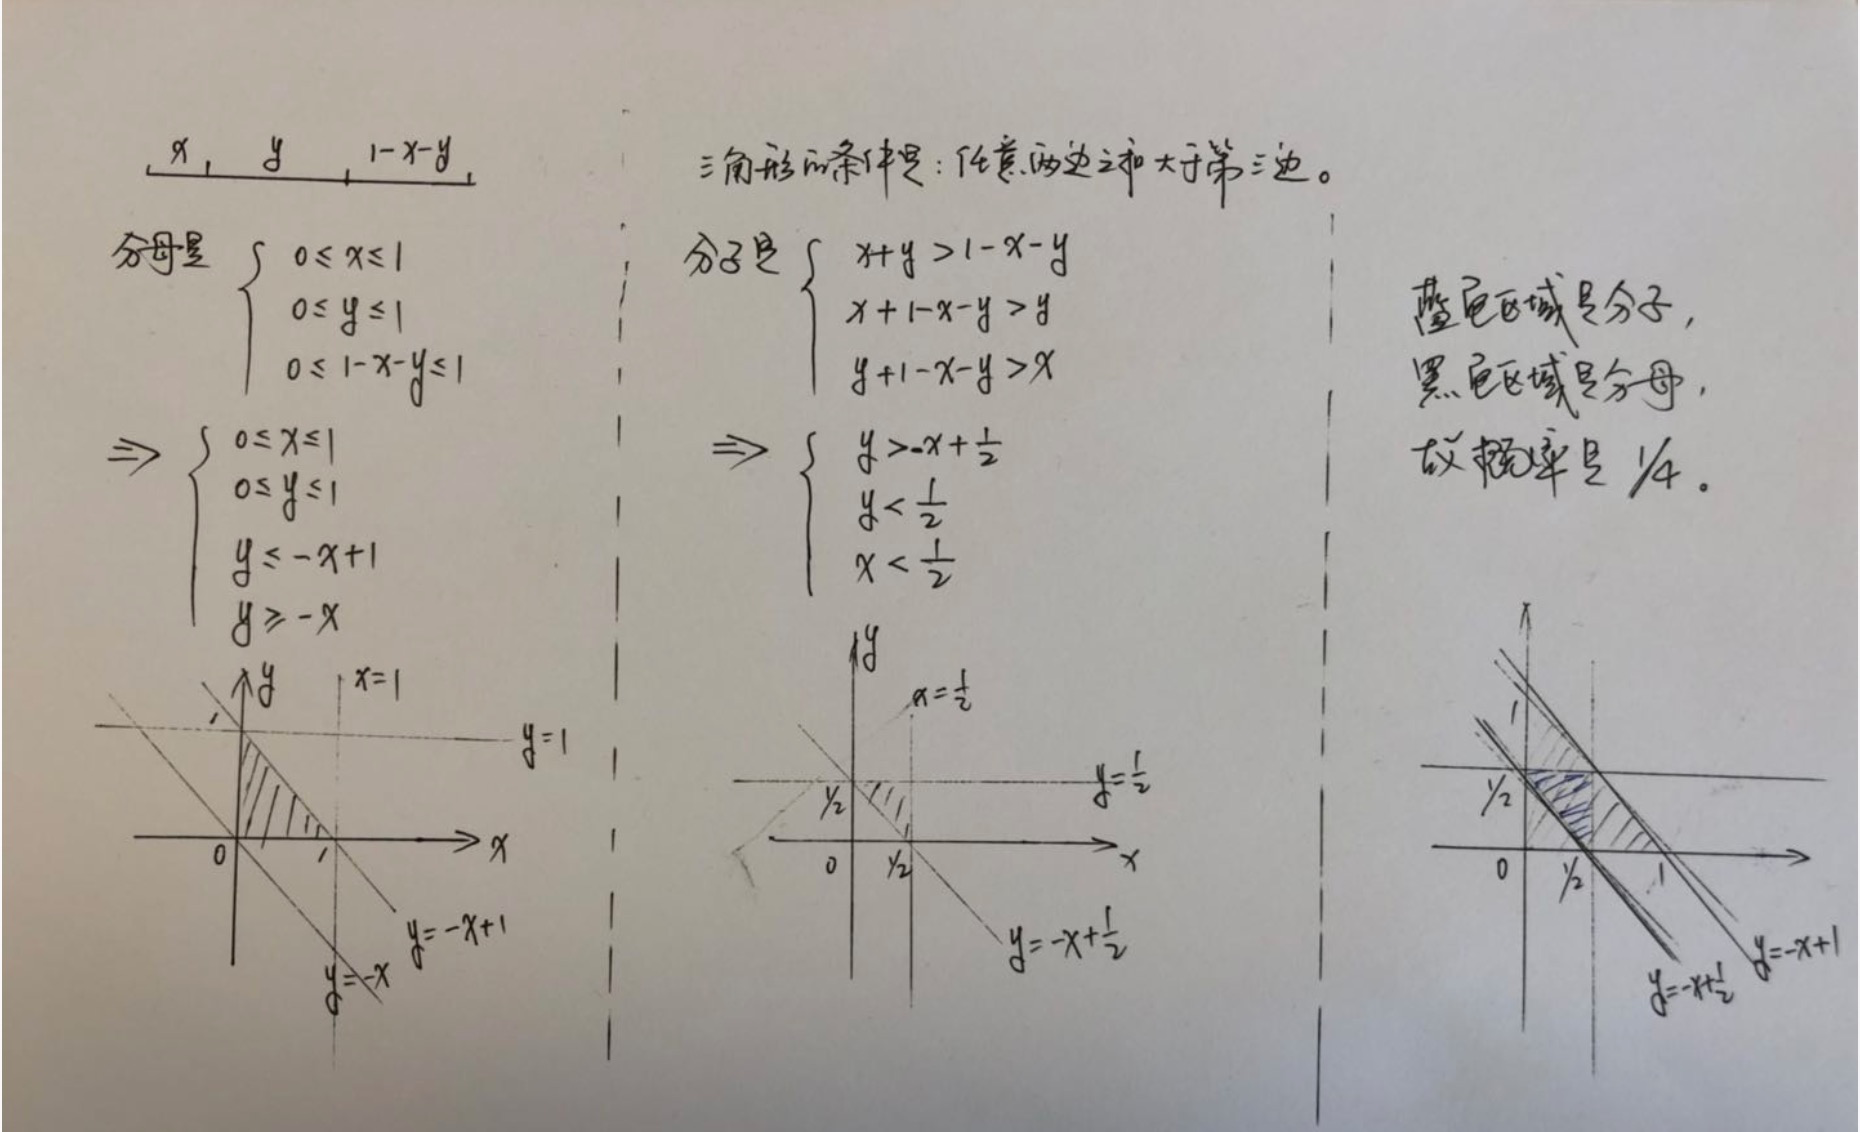 x y 1-x-y
分母是 { 0 ≤ x ≤ 1
0 ≤ y ≤ 1
0 ≤ 1-x-y ≤ 1
⇒ { 0 ≤ x ≤ 1
0 ≤ y ≤ 1
y ≤ -x+1
y ≥ -x
y x=1
1
y=1
0 1 x
y=-x+1
y=-x
三角形的条件是：任意两边之和大于第三边。
分子是 { x+y > 1-x-y
x+1-x-y > y
y+1-x-y > x
⇒ { y > -x+1/2
y < 1/2
x < 1/2
y
x=1/2
y=1/2
1/2
0 1/2 x
y=-x+1/2
蓝色区域是分子，
黑色区域是分母，
故概率是 1/4。
1
1/2
0 1/2 1
y=-x+1
y=-x+1/2